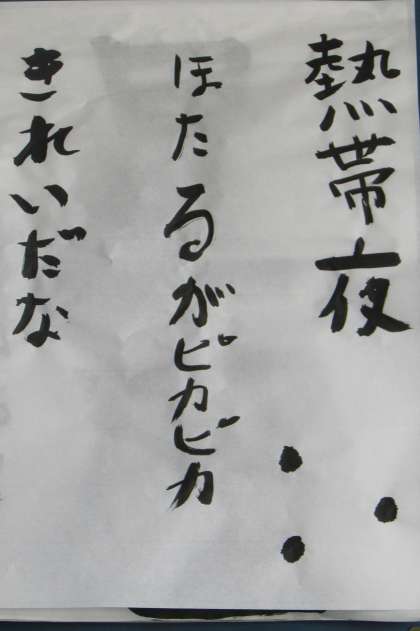 熱帯夜
ほたるがピカピカ
きれいだな